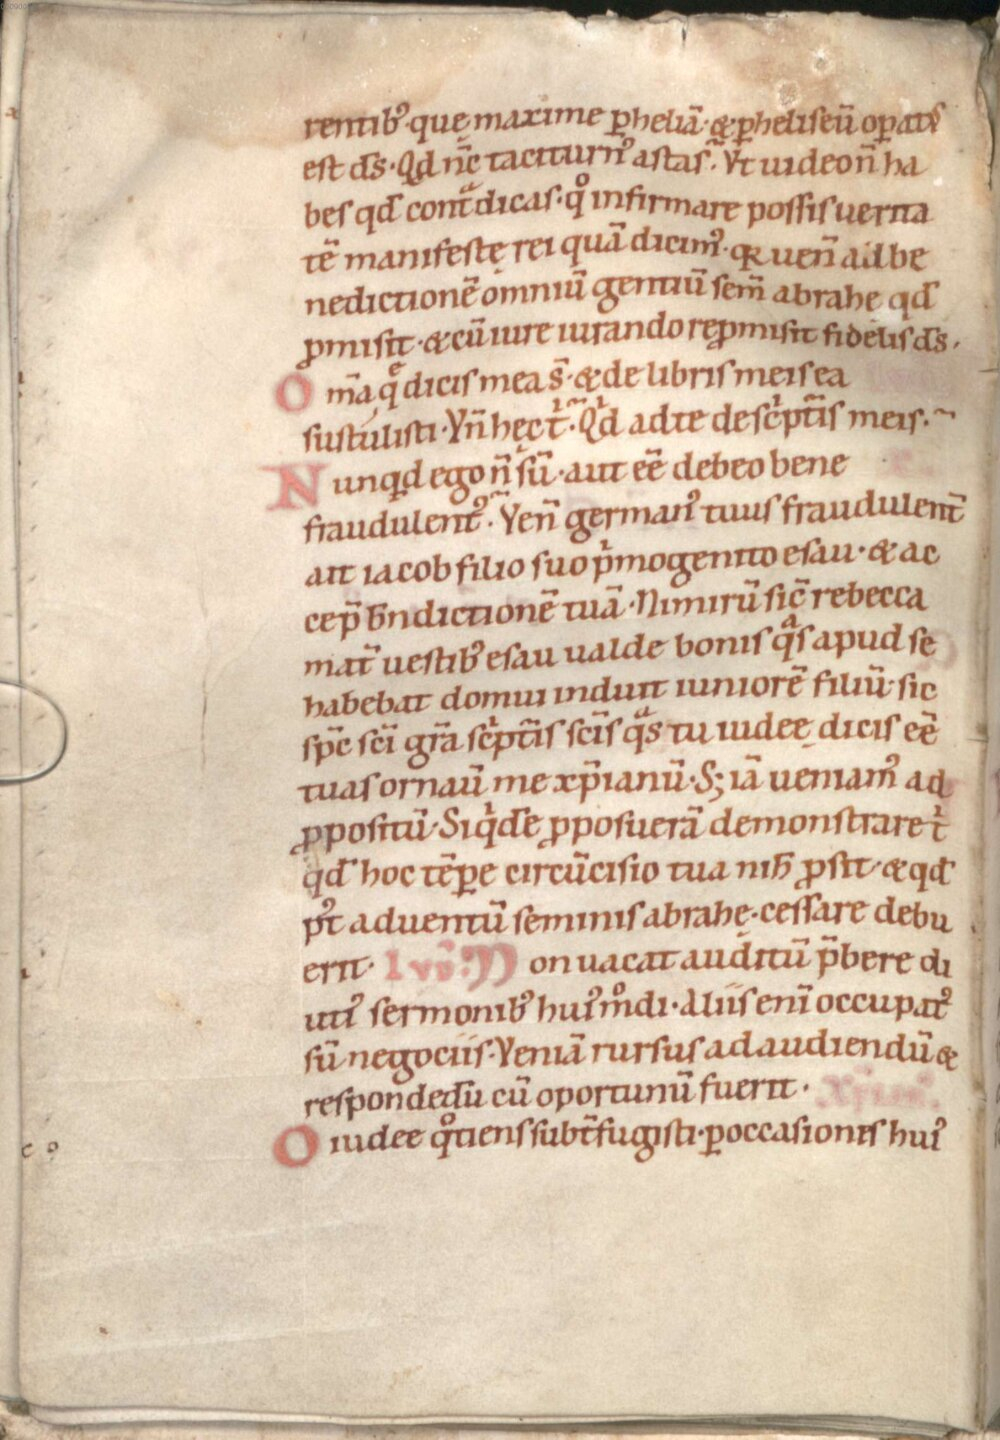 rentibꝰ· que maxime ꝑ heliā· & ꝑ heliseū opatꝰ
est d̄s· Qd nc̄ taciturnꝰ astas? Vt uideo n̄ ha
bes qd̄ contᵃdicas· qͦ infirmare possis uerita
tē manifestę rei quā dicimꝰ· qꝛ uen̄ ad be
nedictionē omniū gentiū sem̄ abrahe qd̄
ꝓmisit· & cū iure iurando reꝓmisit fidelis d̄s·
O m̄a q̄ dicis mea s̄· & de libris meis ea
sustulisti· Vn̄ hęc t̄· Qd ad te de sc̄ptis meis·
N unqd ego n̄ sū· aut eē debeo bene
fraudulentꝰ· Ven̄ germanꝰ tuus fraudulent̄
ait iacob filio suo pͥmogenito esau· & ac
cep̄ bn̄dictionē tuā· Nimirū sic̄ rebecca
mat̄ uestibꝰ esau ualde bonis qᵃs apud se
habebat domui induit iuniorē filiū· sic
sp̄c sc̄i gr̄a sc̄pt̄is sc̄is qᵃs tu iudee dicis eē
tuas ornau̅ me xp̄ianū· S; iā ueniamꝰ ad
ꝓpositū· Siqͥdē ꝓposuerā demonstrare tͥ
qd̄ hoc tēpe circūcisio tua nih̄ ꝓsit· & qd̄
pꝰt aduentū seminis abrahę· cessare debu
erit· Iud̄s· N on uacat auditū p̄bere di
utiꝰ sermonibꝰ huiꝰmͦdi· Aliis enī occupatꝰ
sū negociis· Veniā rursus ad audiendū &
respondedū cū oportunū fuerit· Xp̄ian̄.
O iudee qͦtiens subt̄fugisti· ꝑ occasiones huiꝰ
c o